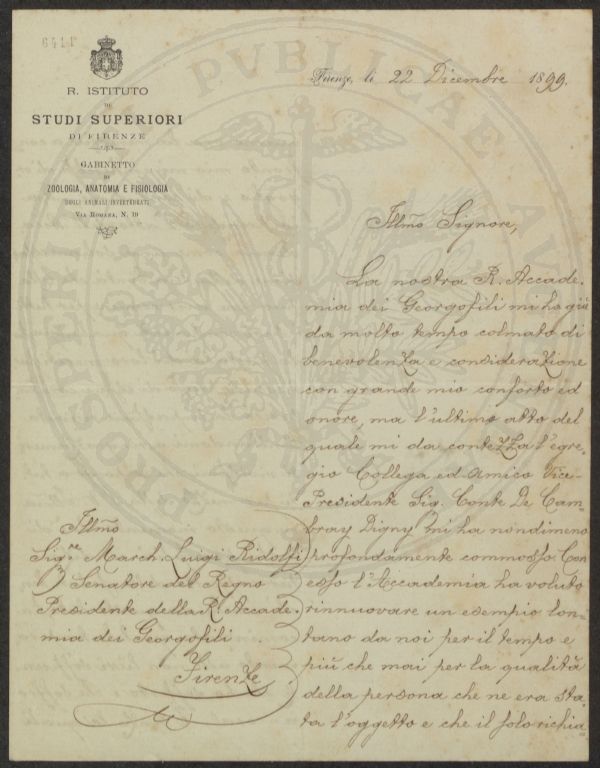 6411
R. ISTITUTO
DI
STUDI SUPERIORI
DI FIRENZE
GABINETTO
DI
ZOOLOGIA, ANATOMIA E FISIOLOGIA
DEGLI ANIMALI INVERTEBRATI
VIA ROMANA, N. 19
Firenze, li 22 Dicembre 1899.
Illmo Signore,
La nostra R. Accade-
mia dei Georgofili mi ha già
da molto tempo colmato di
benevolenza e considerazione
con grande mio conforto ed
onore, ma l'ultimo atto del
quale mi da contezza l'egre-
gio Collega ed Amico Vice-
Presidente Sig. Conte De Cam-
bray Digny mi ha nondimeno
profondamente commosso. Con
esso l'Accademia ha voluto
rinnuovare un esempio lon-
tano da noi per il tempo e
più che mai per la qualità
della persona che ne era sta-
ta l'oggetto e che il solo richia-
Illmo
Sigre March. Luigi Ridolfi
Senatore del Regno
Presidente della R. Accade-
mia dei Georgofili
Firenze
PROSPERITATI PVBLICAE AV